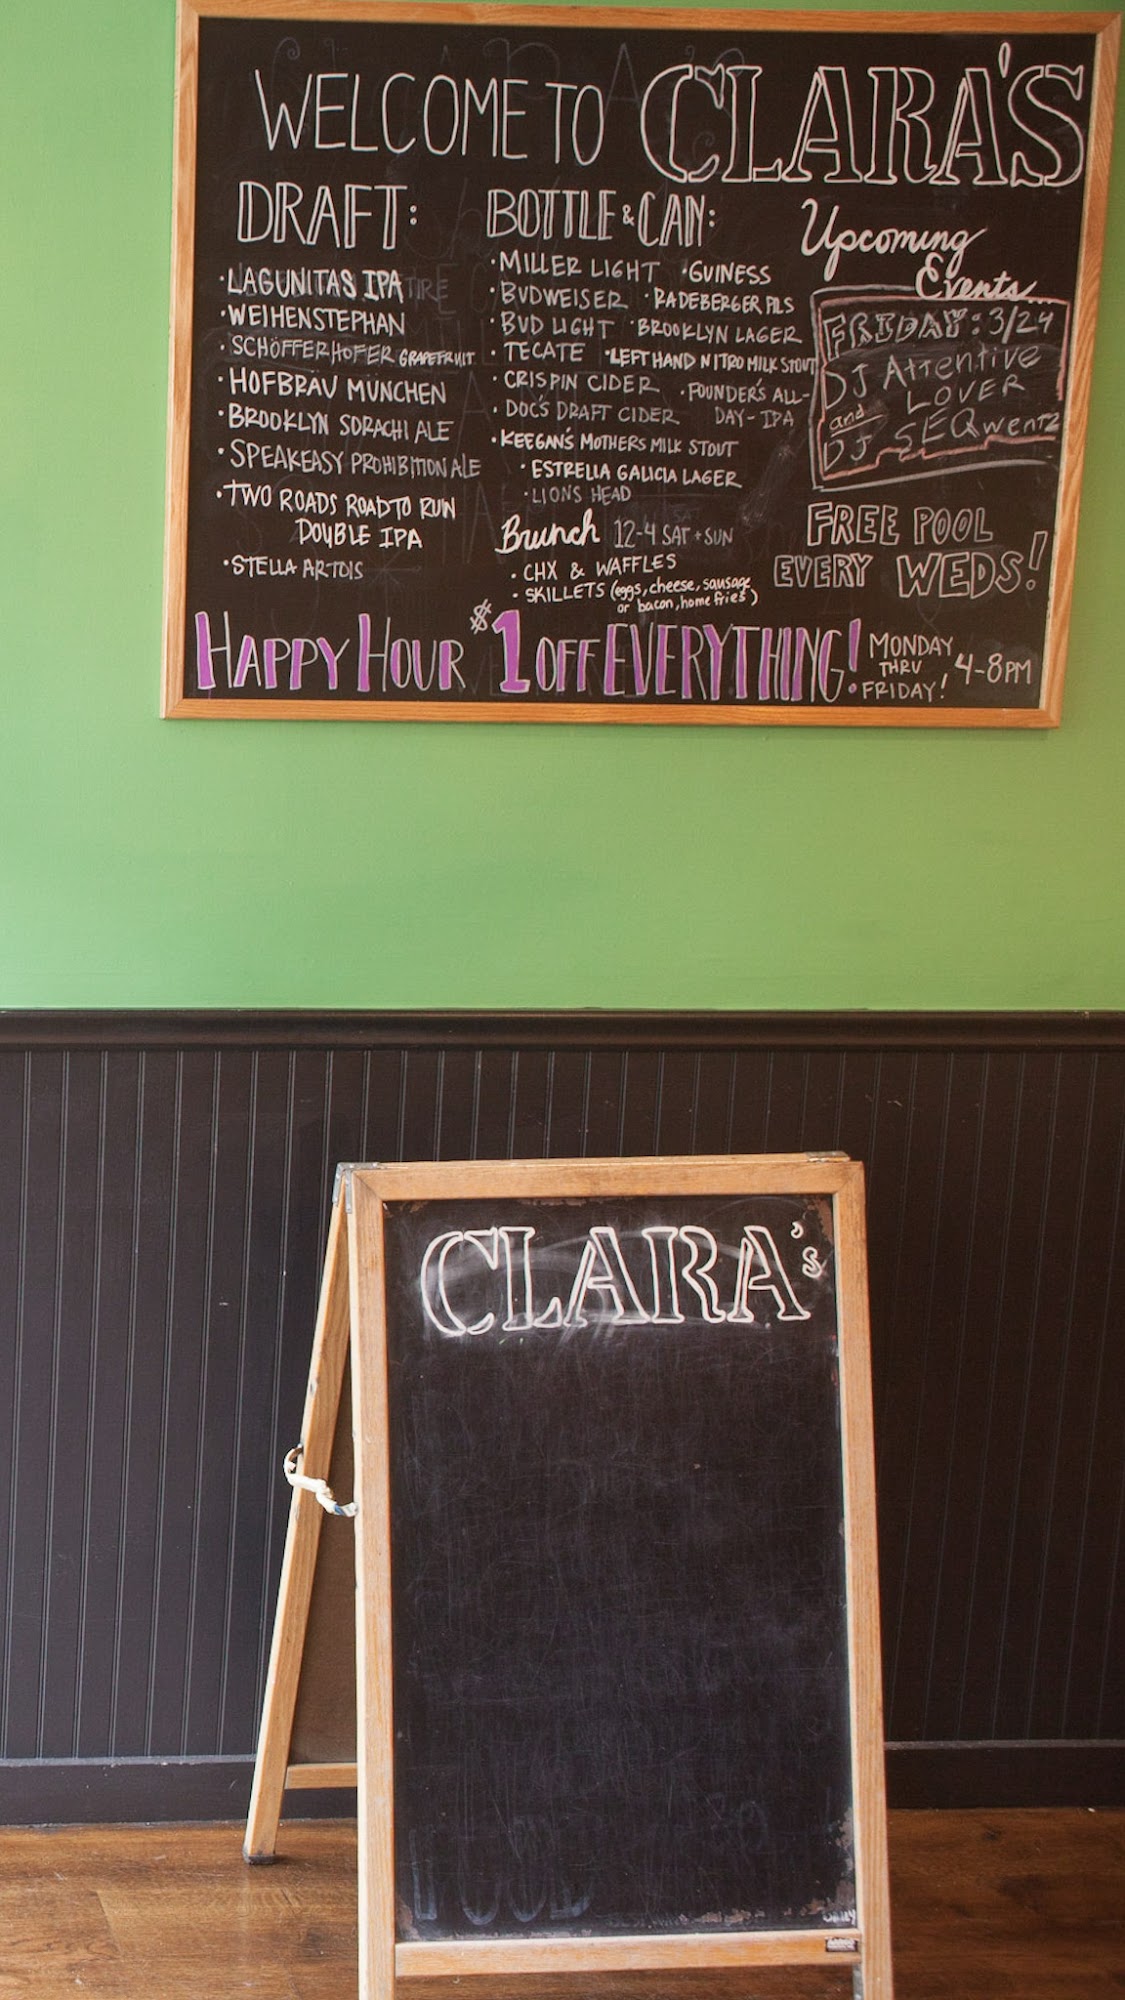 WELCOME TO CLARA'S
DRAFT:
· LAGUNITAS IPA
· WEIHENSTEPHAN
· SCHÖFFERHOFER GRAPEFRUIT
· HOFBRAU MÜNCHEN
· BROOKLYN SORACHI ALE
· SPEAKEASY PROHIBITION ALE
· TWO ROADS ROAD TO RUIN
DOUBLE IPA
· STELLA ARTOIS
BOTTLE & CAN:
· MILLER LIGHT · GUINESS
· BUDWEISER · RADEBERGER PILS
· BUD LIGHT · BROOKLYN LAGER
· TECATE · LEFT HAND NITRO MILK STOUT
· CRISPIN CIDER · FOUNDER'S ALL-
· DOC'S DRAFT CIDER DAY-IPA
· KEEGAN'S MOTHERS MILK STOUT
· ESTRELLA GALICIA LAGER
· LIONS HEAD
Brunch 12-4 SAT + SUN
· CHX & WAFFLES
· SKILLETS (eggs, cheese, sausage
or bacon, home fries)
Upcoming
Events...
FRIDAY: 3/24
DJ Attentive
LOVER
and
DJ SEQwentz
FREE POOL
EVERY WEDS!
HAPPY HOUR $1 OFF EVERYTHING!
MONDAY
THRU
FRIDAY!
4-8PM
CLARA's
FOOD